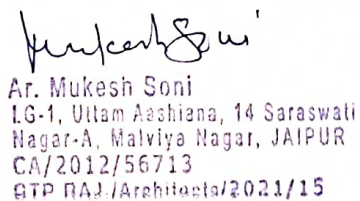 Mukesh Soni
Ar. Mukesh Soni
LG-1, Uttam Aashiana, 14 Saraswati
Nagar-A, Malviya Nagar, JAIPUR
CA/2012/56713
BTP RAJ./Architects/2021/15